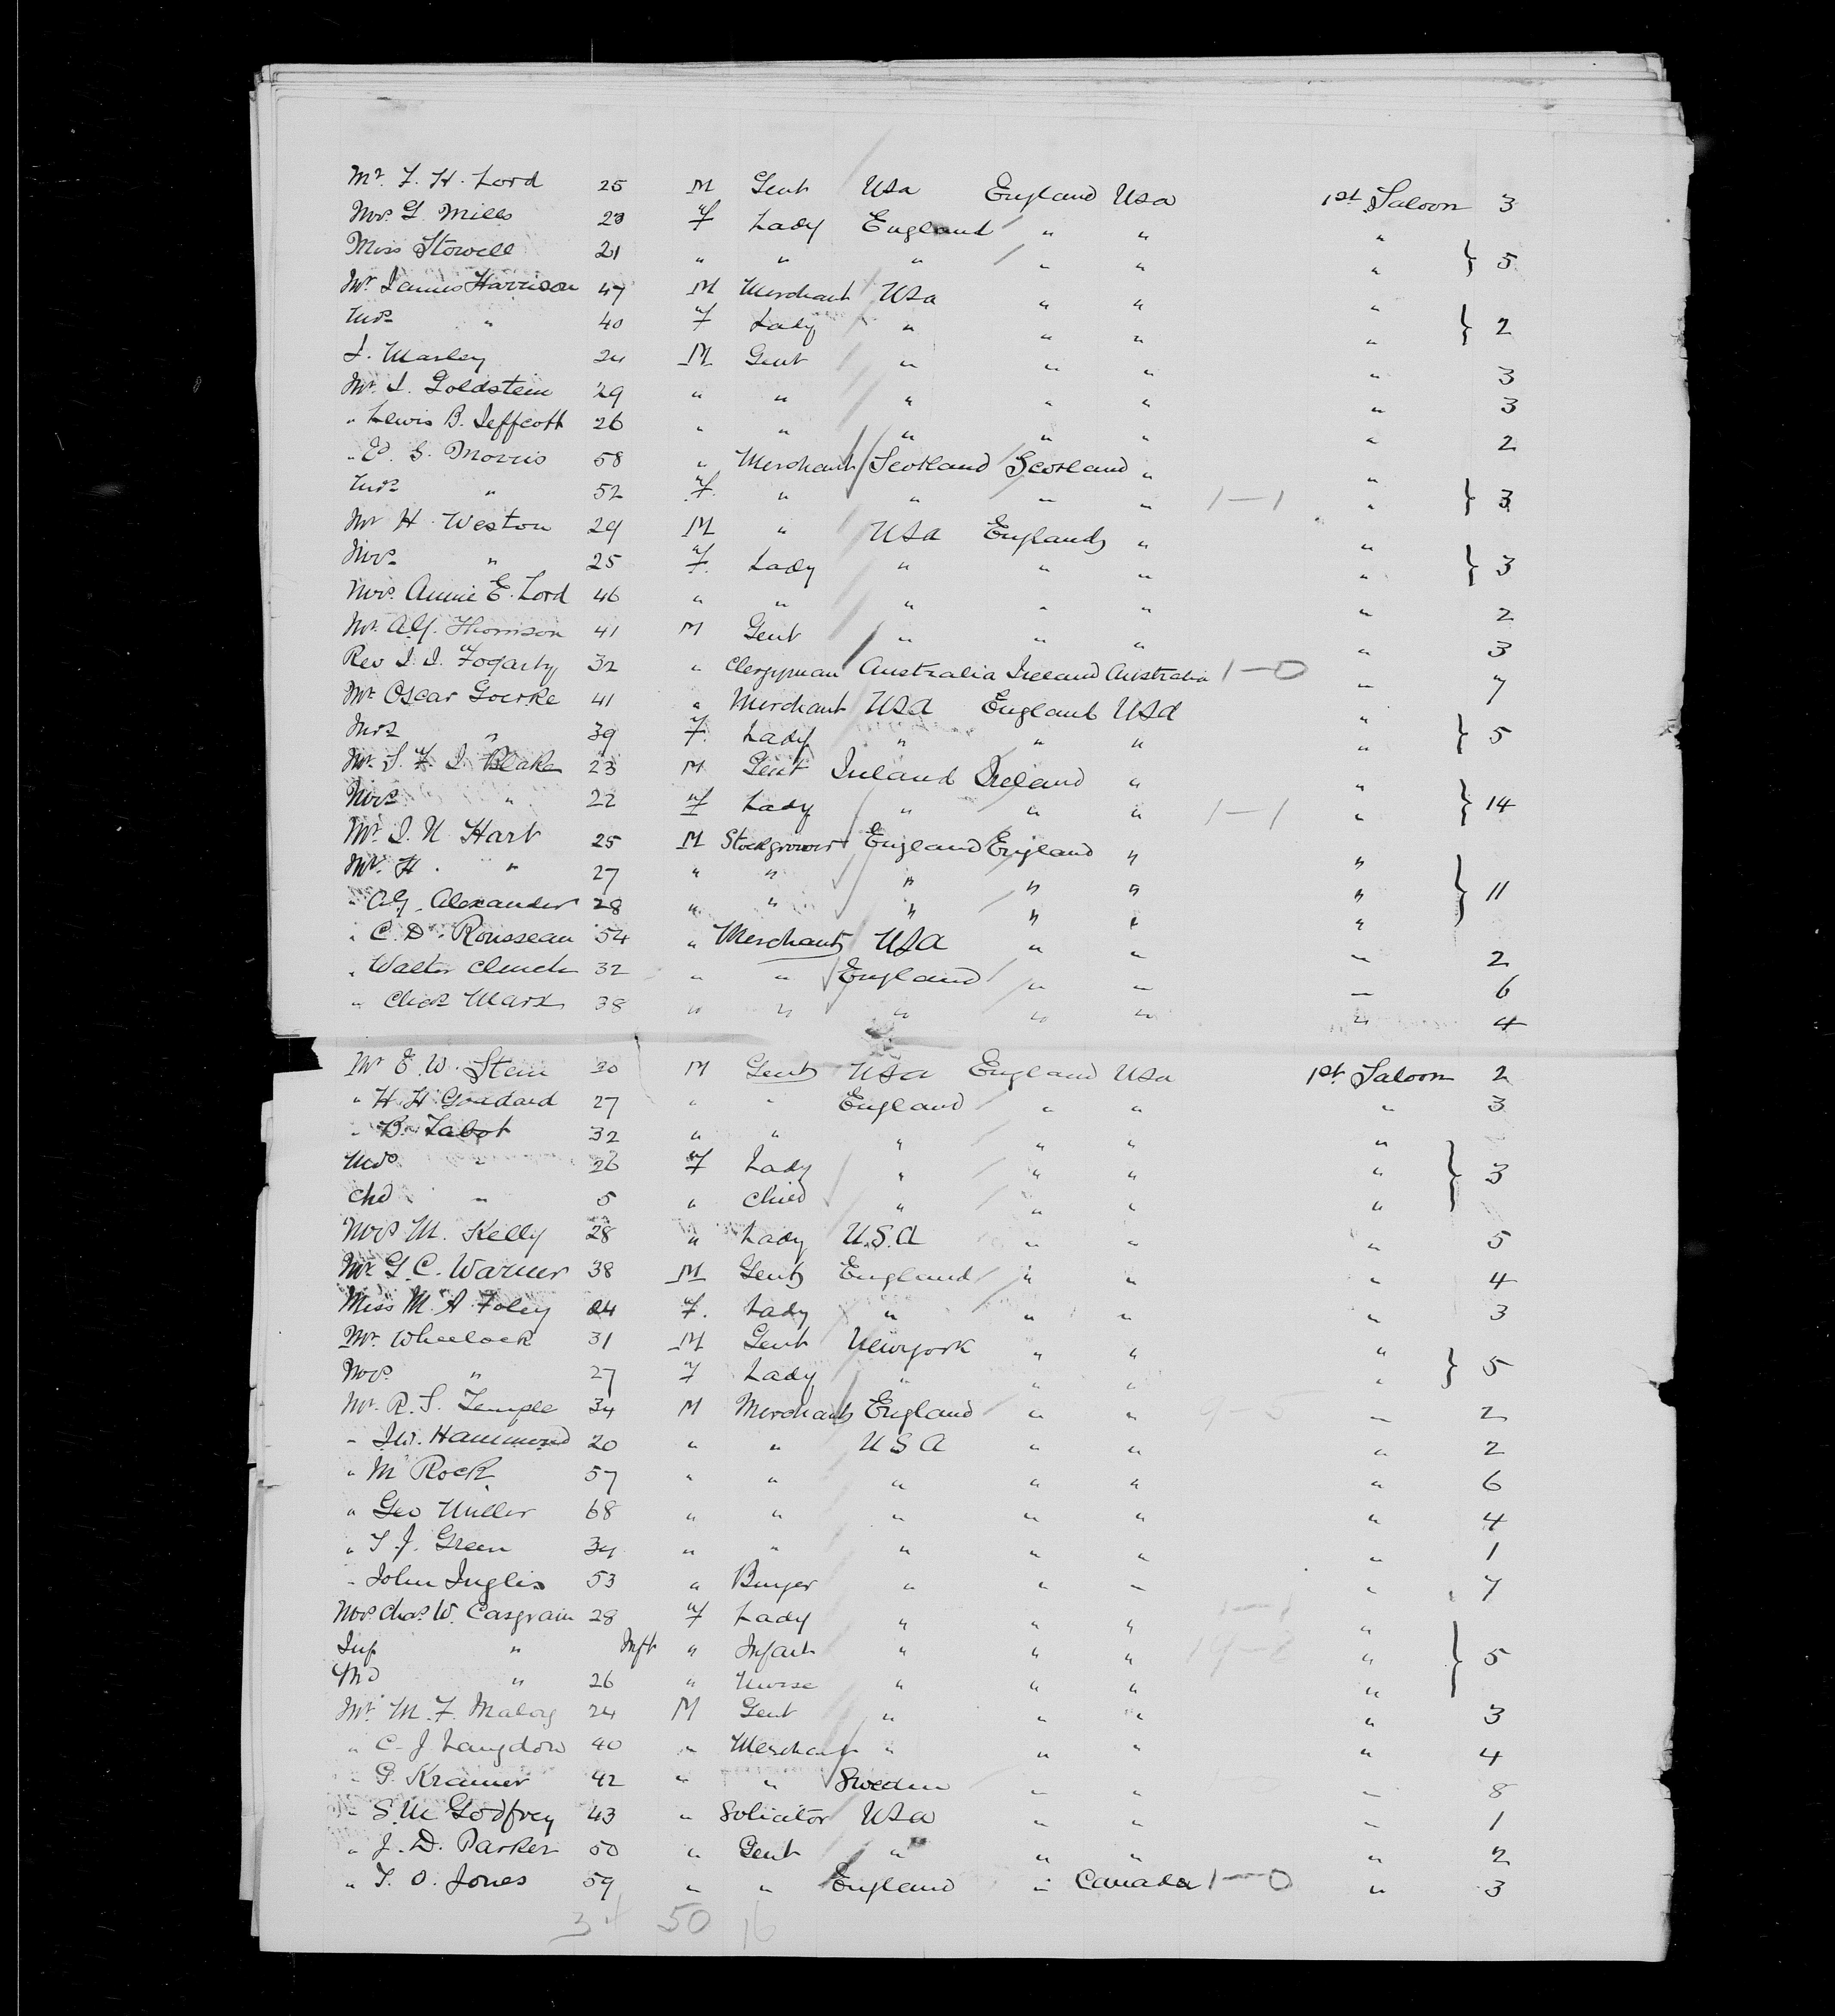 Mr. F. H. Lord 25 M Gent USa England Usa 1st Saloon 3
Mrs. G. Mills 23 F Lady England " " "
Miss Stowell 21 " " " " " " } 5
Mr. James Harrison 47 M Merchant USa " " "
Mrs. " 40 F Lady " " " " } 2
J. Marley 24 M Gent " " " " 3
Mr. I. Goldstein 29 " " " " " " 3
" Lewis B. Jeffcott 26 " " " " " " 2
" S. Morris 58 " Merchant Scotland Scotland " "
Mrs. " 52 F. " " " " 1—1 " } 3
Mr H. Weston 29 M " USA England " "
Mrs. " 25 F. Lady " " " " } 3
Mrs. Annie E. Lord 46 " " " " " " 2
Mr. A.G. Thomson 41 M Gent " " " " 3
Rev J. J. Fogarty 32 " Clergyman Australia Ireland Australia 1—0 " 7
Mr Oscar Goerke 41 " Merchant USA England USA "
Mrs " 39 F. Lady " " " " } 5
Mr. S. F. J. Blake 23 M Gent Ireland Ireland " "
Mrs. " 22 F Lady " " " 1—1 " } 14
Mr. J. N. Hart 25 M Stockgrower England England " "
Mr. H. " 27 " " " " " " } 11
" A.G. Alexander 28 " " " " " "
" C. D. Rousseau 54 " Merchant USA " " " 2
" Walter Church 32 " " England " " " 6
" Chas Marx 38 " " " " " " 4
Mr E. W. Stein 30 M Gent USa England USa 1st Saloon 2
" H. H. Goddard 27 " " England " " " 3
" B. Talbot 32 " " " " " "
Mrs. " 26 F Lady " " " " } 3
Chd " 5 " Child " " " "
Mrs M. Kelly 28 " Lady U.S.A " " " 5
Mr G. C. Warner 38 M Gent England " " " 4
Miss M. A Foley 24 F. Lady " " " " 3
Mr. Wheelock 31 M Gent Newyork " " "
Mrs. " 27 F Lady " " " " } 5
Mr. R. S. Temple 34 M Merchant England " " 9—5 " 2
" J.W. Hammond 20 " " USA " " " 2
" M Rock 57 " " " " " " 6
" Geo Miller 68 " " " " " " 4
" T. J. Green 34 " " " " " " 1
" John Inglis 53 " Buyer " " " " 7
Mrs. Chas. W. Casgrain 28 F Lady " " " 1—1 "
Inf " Inft " Infant " " " " } 5
" 26 " Nurse " " " "
Mr. M. F. Maloy 24 M Gent " " " " 3
" C. J. Langdon 40 " Merchant " " " " 4
" G. Kramer 42 " " Sweden " " " 8
" S. M Godfrey 43 " Solicitor USa " " " 1
" J. D. Parker 50 " Gent " " " " 2
" T. O. Jones 59 " " England " Canada 1—0 " 3
34 50 16